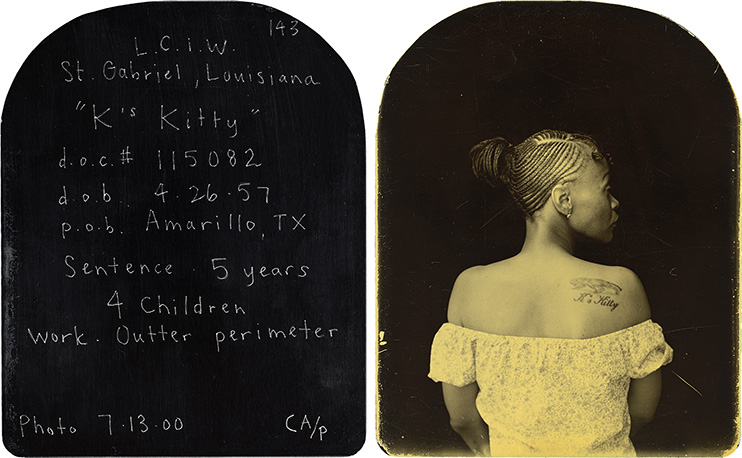 143
L.C.i.W.
St. Gabriel, Louisiana
"K's Kitty"
d.o.c.# 115082
d.o.b. 4.26.57
p.o.b. Amarillo, TX
Sentence. 5 years
4 Children
Work. Outter perimeter
Photo 7.13.00
CA/p
K's Kitty